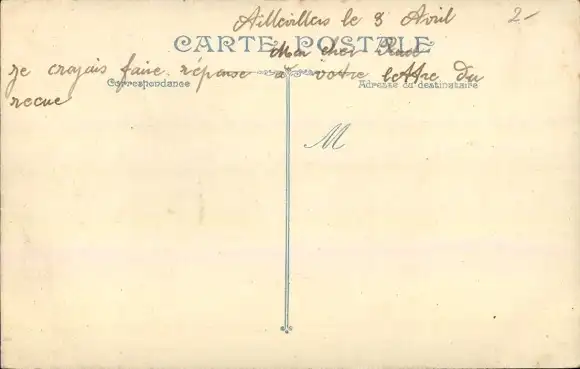 Aillevillers le 8 Avril
2-
CARTE POSTALE
Mon cher
je crayais faire réponse a votre lettre du
Correspondance
Adresse du destinataire
recue
M